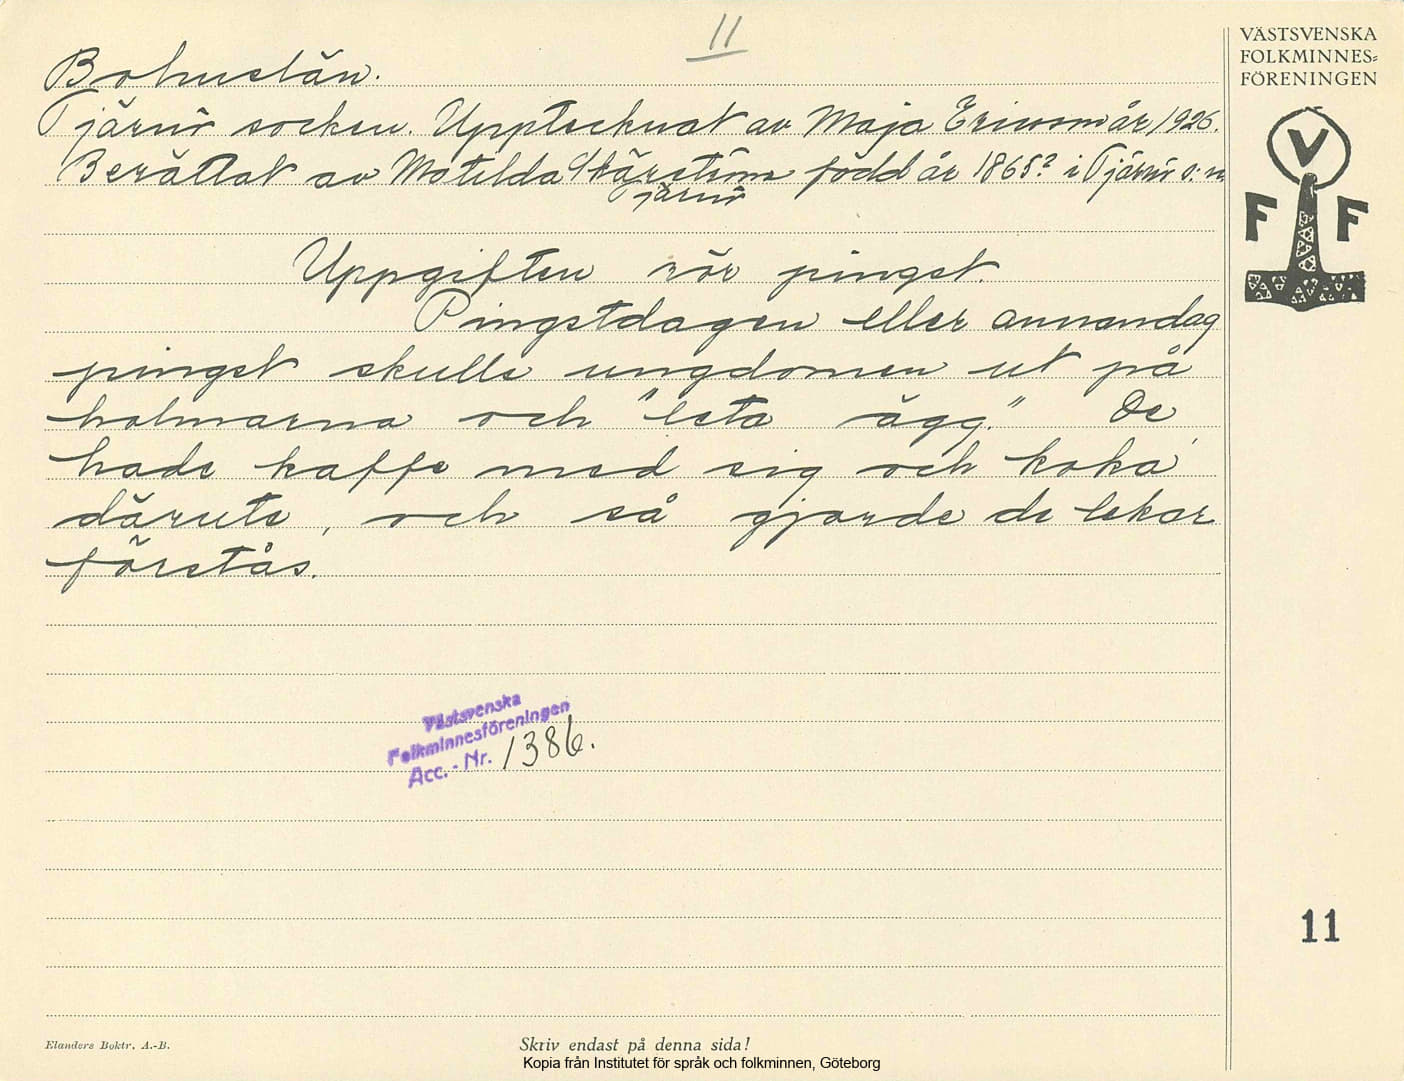 11
VÄSTSVENSKA
FOLKMINNES=
FÖRENINGEN
V
F F
Bohuslän.
Tjärnö socken. Upptecknat av Maja Ericson år 1926.
Berättat av Matilda född år 1865? i Tjärnö s:n
Tjärnö
Uppgiften rör pingst.
Pingstdagen eller annandag
pingst skulle ungdomen ut på
holmarna och "leta ägg." De
hade kaffe med sig och koka'
därute, och så gjorde de lekar
förstås.
Västsvenska
Folkminnesföreningen
Acc. - Nr. 1386.
11
Elanders Boktr. A.-B.
Skriv endast på denna sida!
Kopia från Institutet för språk och folkminnen, Göteborg